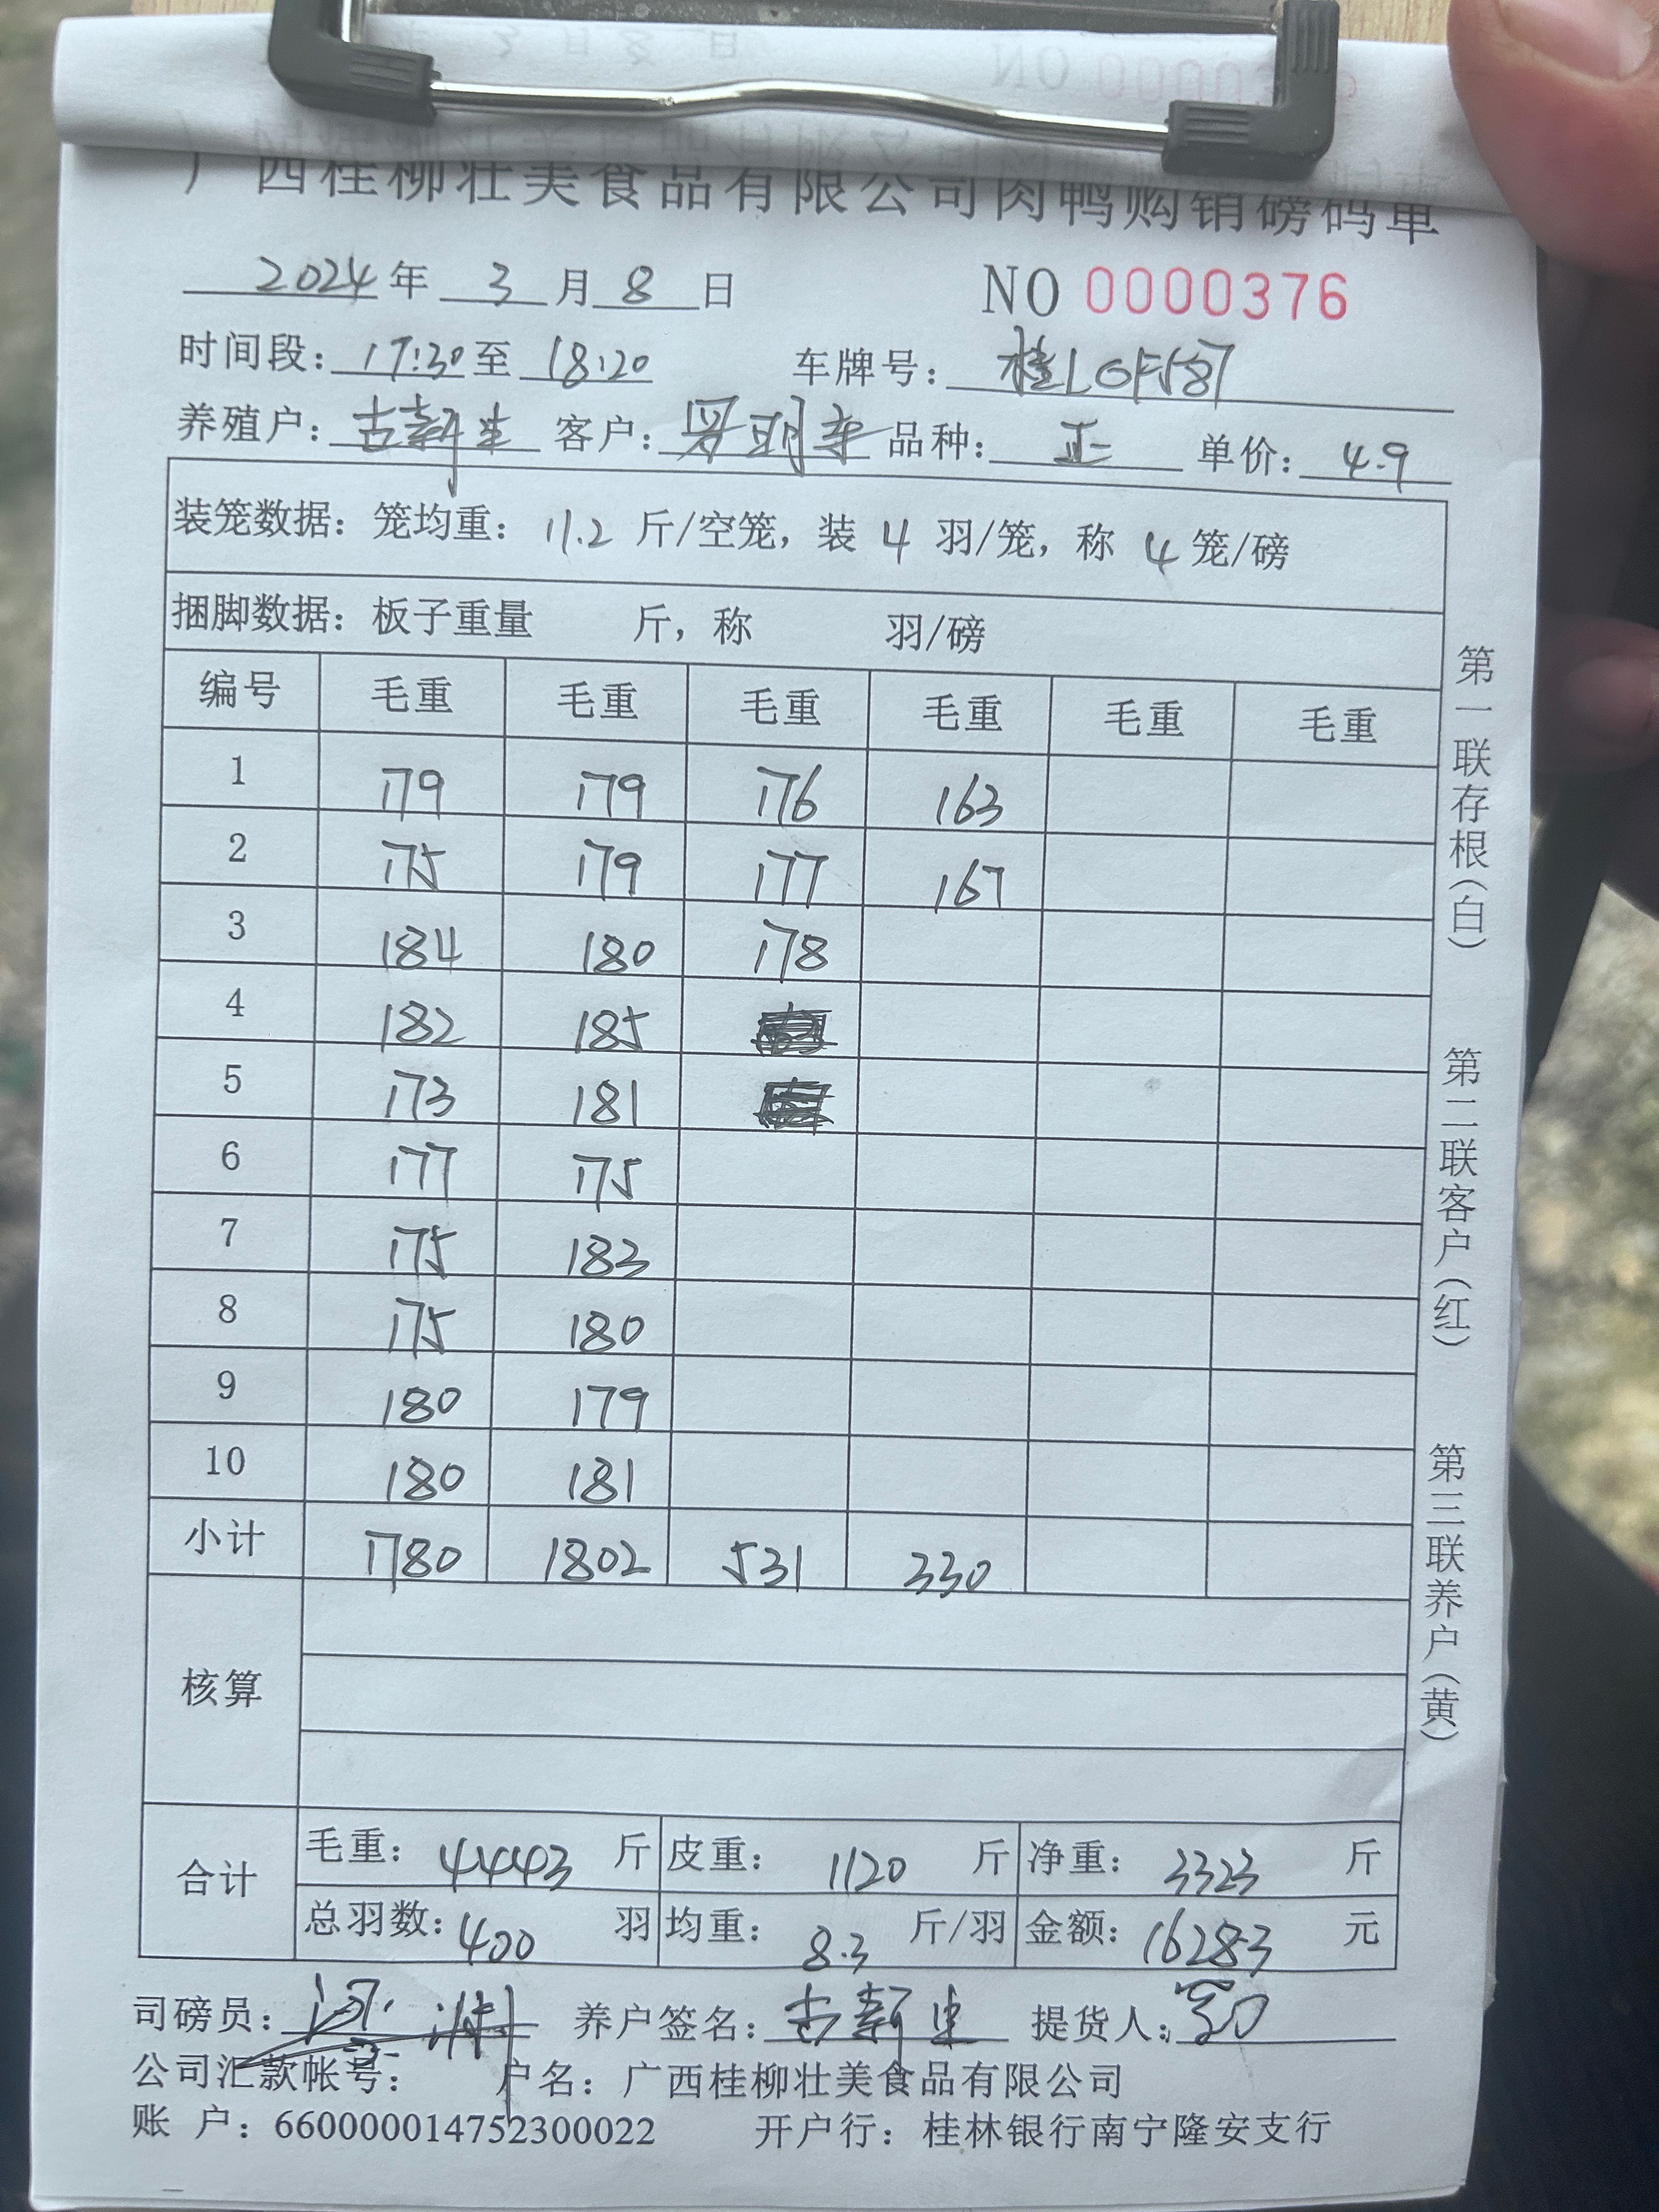 广西桂柳壮美食品有限公司肉鸭购销磅码单
2024年 3月 8日 NO 0000376
时间段: 17:30至 18:20 车牌号: 桂L
养殖户: 古新生 客户: 罗明 品种: 正 单价: 4.9
装笼数据: 笼均重: 11.2 斤/空笼, 装 4 羽/笼, 称 4 笼/磅
捆脚数据: 板子重量 斤, 称 羽/磅
编号 毛重 毛重 毛重 毛重 毛重 毛重
1 179 179 176 163
2 175 179 177 167
3 184 180 178
4 182 185
5 173 181
6 177 175
7 175 183
8 175 180
9 180 179
10 180 181
小计 1780 1802 531 330
核算
合计
毛重: 4443 斤 皮重: 1120 斤 净重: 3323 斤
总羽数: 400 羽 均重: 8.3 斤/羽 金额: 16283 元
司磅员: 养户签名: 古新生 提货人:
公司汇款帐号: 户名: 广西桂柳壮美食品有限公司
账 户: 660000014752300022 开户行: 桂林银行南宁隆安支行
第一联存根(白)
第二联客户(红)
第三联养户(黄)